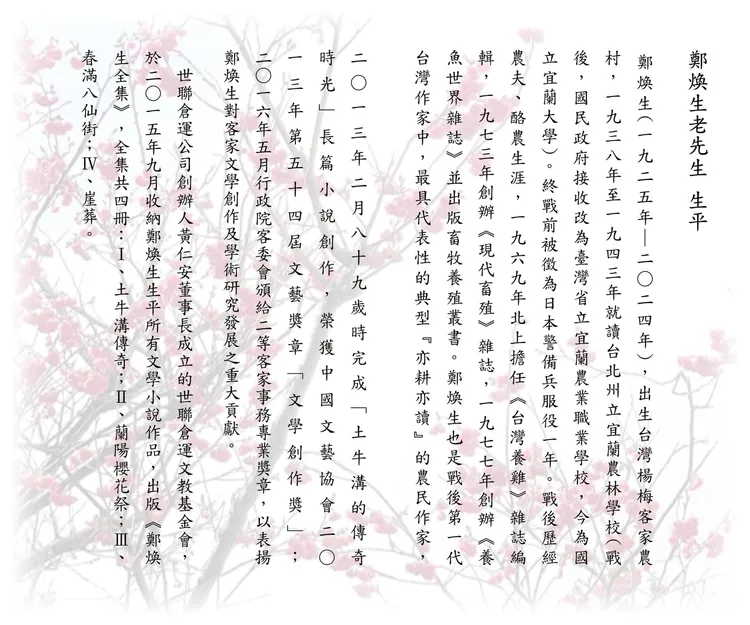 鄭煥生老先生 生平
鄭煥生(一九二五年—二〇二四年)，出生台灣楊梅客家農
村，一九三八年至一九四三年就讀台北州立宜蘭農林學校(戰
後，國民政府接收改為臺灣省立宜蘭農業職業學校，今為國
立宜蘭大學)。終戰前被徵為日本警備兵服役一年。戰後歷經
農夫、酪農生涯，一九六九年北上擔任《台灣養雞》雜誌編
輯，一九七三年創辦《現代畜殖》雜誌，一九七七年創辦《養
魚世界雜誌》並出版畜牧養殖叢書。鄭煥生也是戰後第一代
台灣作家中，最具代表性的典型『亦耕亦讀』的農民作家，
二〇一三年二月八十九歲時完成「土牛溝的傳奇
時光」長篇小說創作，榮獲中國文藝協會二〇
一三年第五十四屆文藝獎章「文學創作獎」；
二〇一六年五月行政院客委會頒給二等客家事務專業獎章，以表揚
鄭煥生對客家文學創作及學術研究發展之重大貢獻。
世聯倉運公司創辦人黃仁安董事長成立的世聯倉運文教基金會，
於二〇一五年九月收納鄭煥生生平所有文學小說作品，出版《鄭煥
生全集》，全集共四冊：Ⅰ、土牛溝傳奇；Ⅱ、蘭陽櫻花祭；Ⅲ、
春滿八仙街；Ⅳ、崖葬。